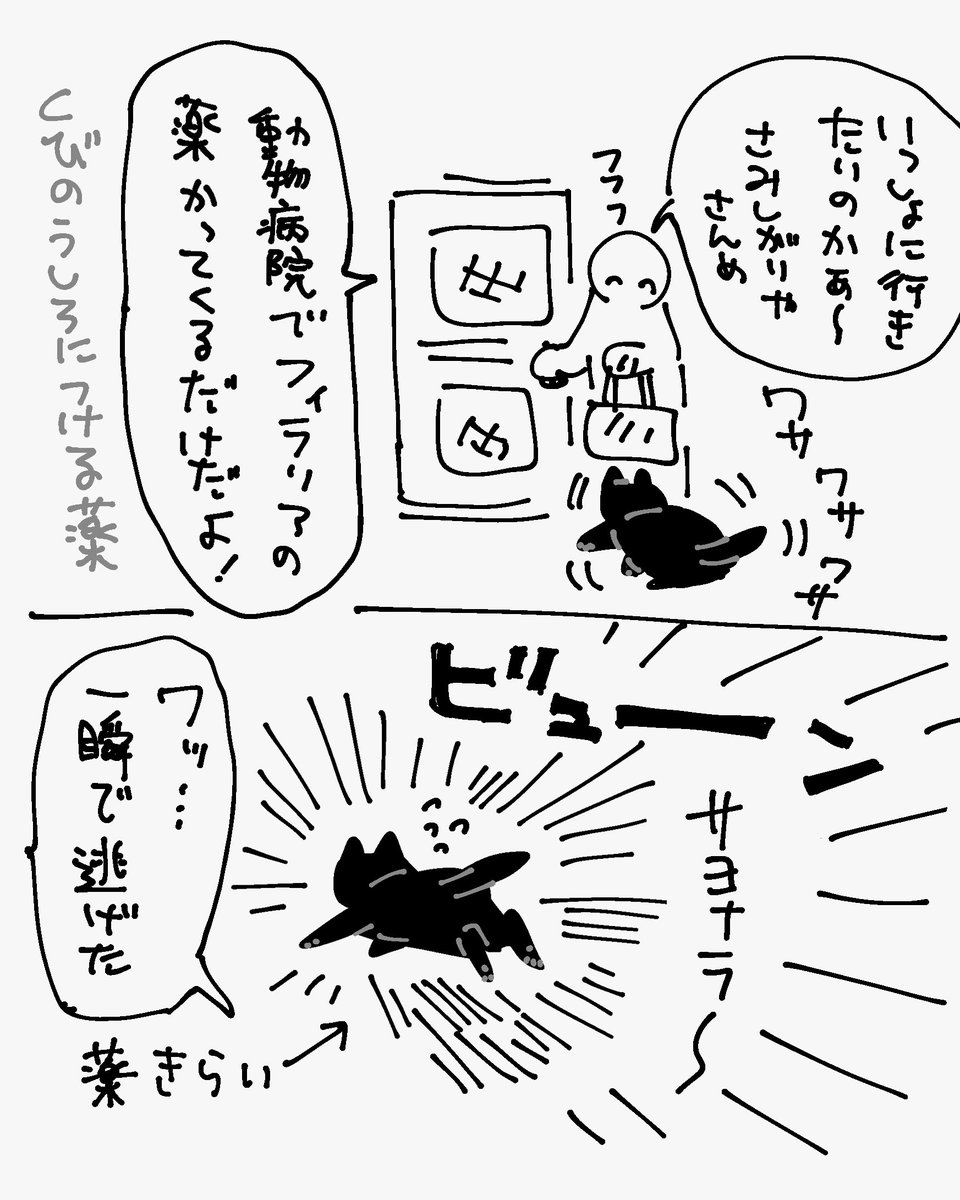 いっしょに行き
たいのかぁ〜
さみしがりや
さんめ
フフフ
ワサ
ワサ
ワサ
動物病院でフィラリアの
薬かってくるだけだよ!
くびのうしろにつける薬
ビューン
サヨナラ〜
ワッ…
一瞬で逃げた
薬きらい